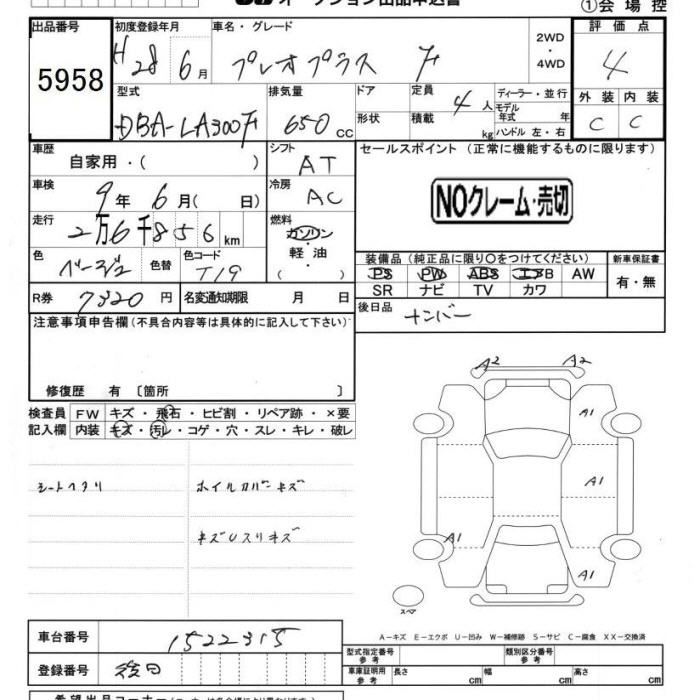 オークション出品申込書
①会場控
出品番号 初度登録年月 車名・グレード 評価点
5958 H28年 6月 プレオプラス F 2WD・4WD 4
型式 排気量 ドア 定員 ディーラー・並行 外装 内装
DBA-LA300F 650cc 形状 4人 積載 kg モデル年式 年 ハンドル 左・右 C C
車歴 自家用・( ) シフト AT セールスポイント (正常に機能するものに限ります)
車検 9年 6月 ( 日) 冷房 AC NOクレーム・売切
走行 2万6千856km 燃料 ガソリン 軽油 ( )
色 ベージュ 色替 色コード T19
装備品 (純正品に限り○をつけてください) 新車保証書
PS PW ABS エアB AW 有・無
SR ナビ TV カワ
R券 7320円 名変通知期限 月 日 後日品 ナンバー
注意事項申告欄 (不具合内容等は具体的に記入して下さい)
修復歴 有 〔箇所 〕
検査員 FW キズ・飛石・ヒビ割・リペア跡・×要
記入欄 内装 キズ・汚レ・コゲ・穴・スレ・キレ・破レ
A2 A2
A1
シートヘタリ ホイルカバーキズ A1
キズUスリキズ A1
A1
スペア
A-キズ E-エクボ U-凹み W-補修跡 S-サビ C-腐食 XX-交換済
車台番号 1522315
型式指定番号 参考 類別区分番号 参考
登録番号 後日 車庫証明用 参考 長さ cm 幅 cm 高さ cm
希望出品コーナー